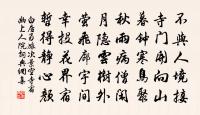 不與人境接
寺門開向山
暮鐘寒鳥聚
秋雨病僧閑
月隱雲樹外
螢飛廊宇間
幸投花界宿
暫得靜心顏
白居易旅次景空寺宿
幽上人院